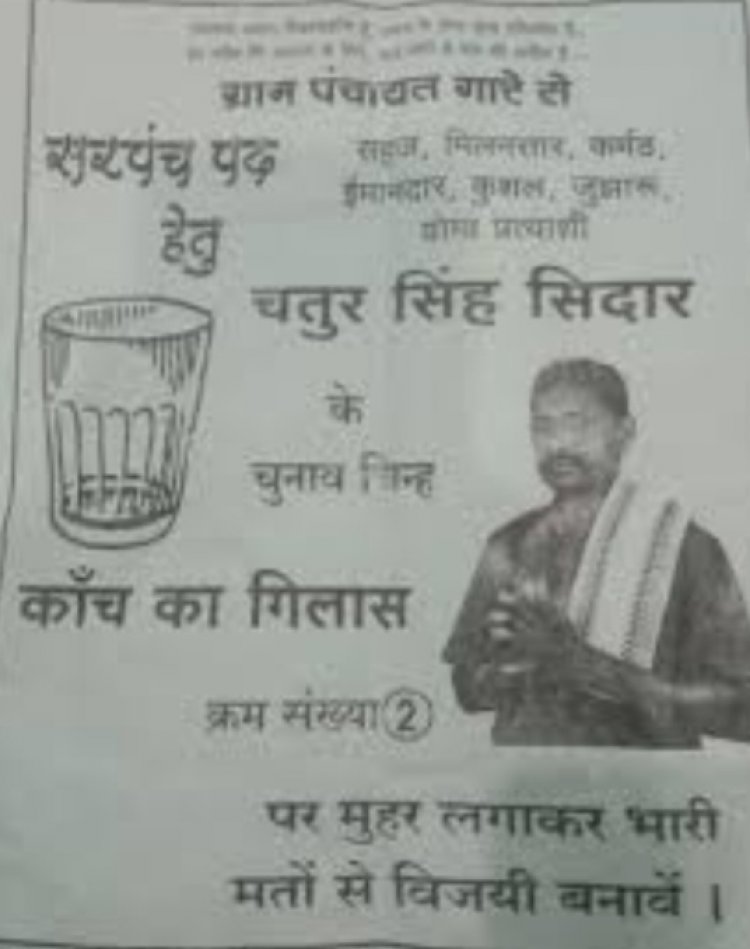 ग्राम पंचायत गारे से
सरपंच पद
हेतु
सहज, मिलनसार, कर्मठ,
ईमानदार, कुशल, जुझारू,
योग्य प्रत्याशी
चतुर सिंह सिदार
के
चुनाव चिन्ह
काँच का गिलास
क्रम संख्या 2
पर मुहर लगाकर भारी
मतों से विजयी बनावें ।